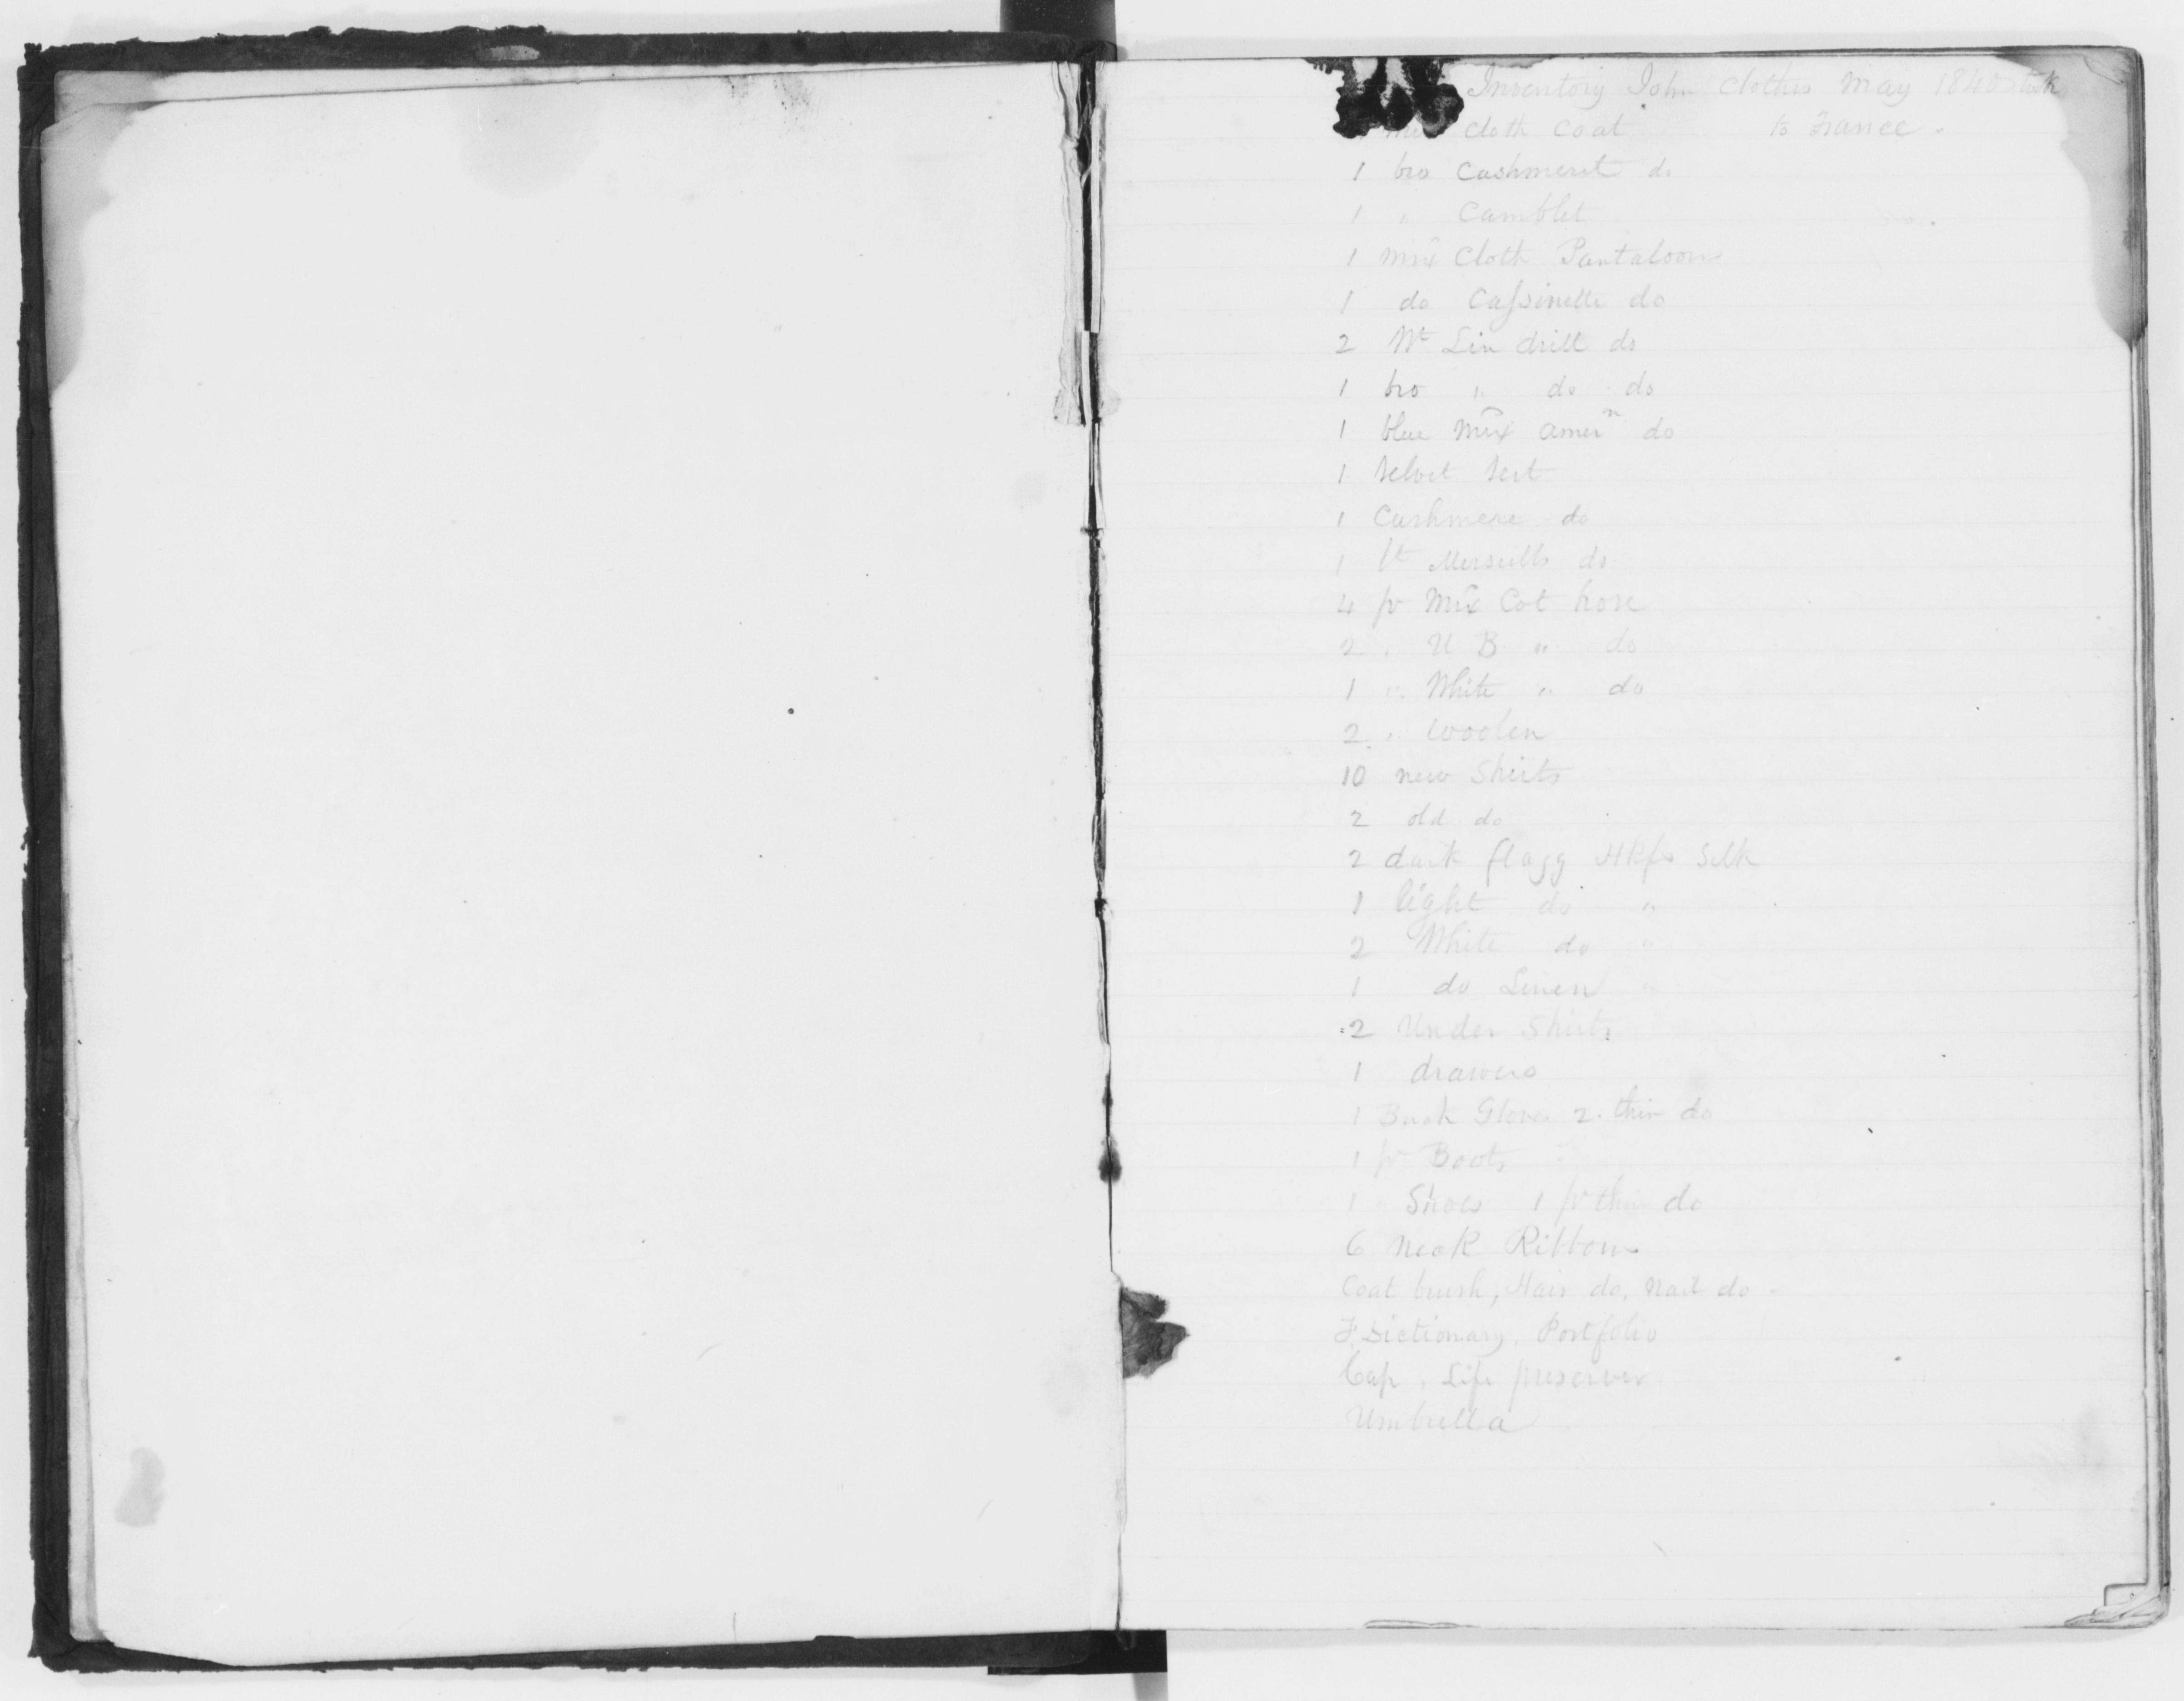 Inventory John Clothes May 1840 took
mix Cloth Coat to France.
1 bro Cashmerit do
1 " Camblet
1 mix Cloth Pantaloons
1 do Cassinette do
2 Wt Lin drill do
1 bro " do do
1 blue mix Amern do
1 Velvet Vest
1 Cashmere do
1 Merseills do
4 pr Mix Cot hose
2 " U B " do
1 " White " do
2 " Woolen
10 new Shirts
2 old do
2 dark flagg Hkfs Silk
1 light do "
2 White do "
1 do Linen "
2 Under Shirts
1 drawers
1 Buck Gloves 2 thin do
1 pr Boots
1 " Shoes 1 pr thin do
6 Neck Ribbons
Coat brush, Hair do, Nail do.
F. Dictionary. Portfolio
Cap, Life preserver
Umbrella